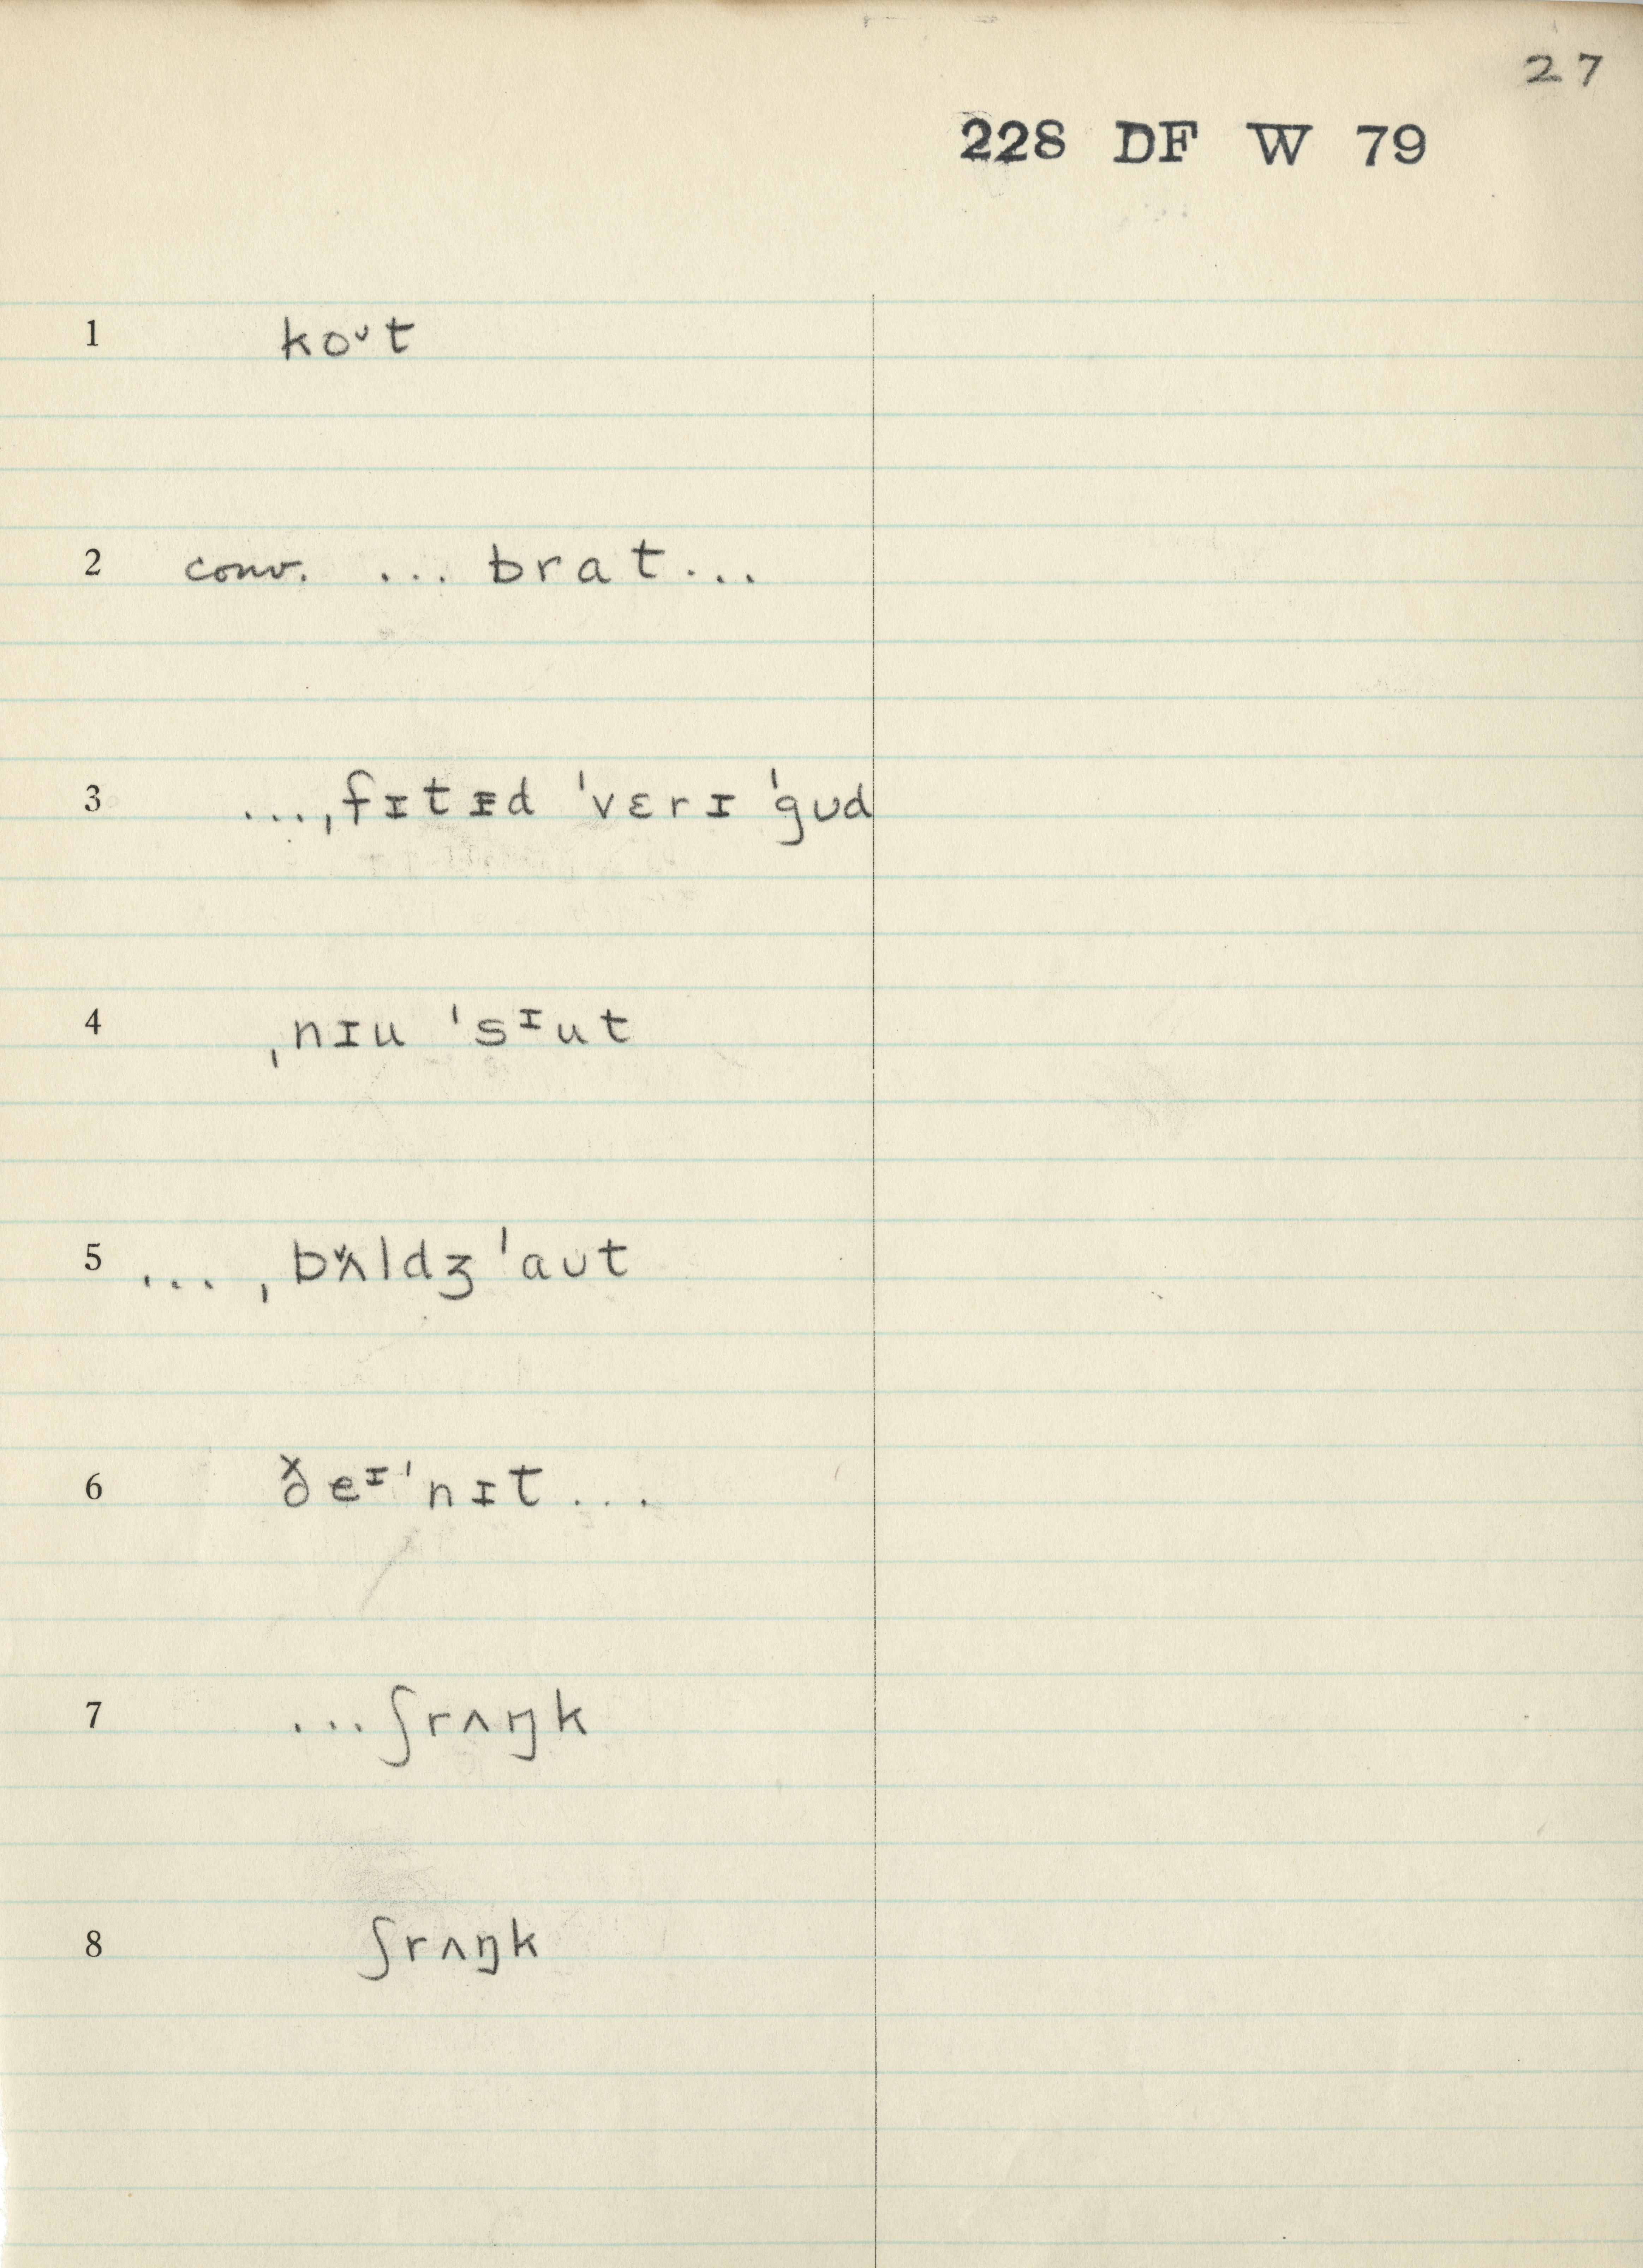 27
228 DF W 79
1 koᶷt
2 conv. ... brat...
3 ...ˌfɪtɪd ˈvɛrɪ ˈgʊd
4 ˌnɪu ˈsᶦut
5 ... ˌbʌ̌ldʒ ˈaʊt
6 ð eᶦˈnɪt...
7 ...ʃrʌŋk
8 ʃrʌŋk